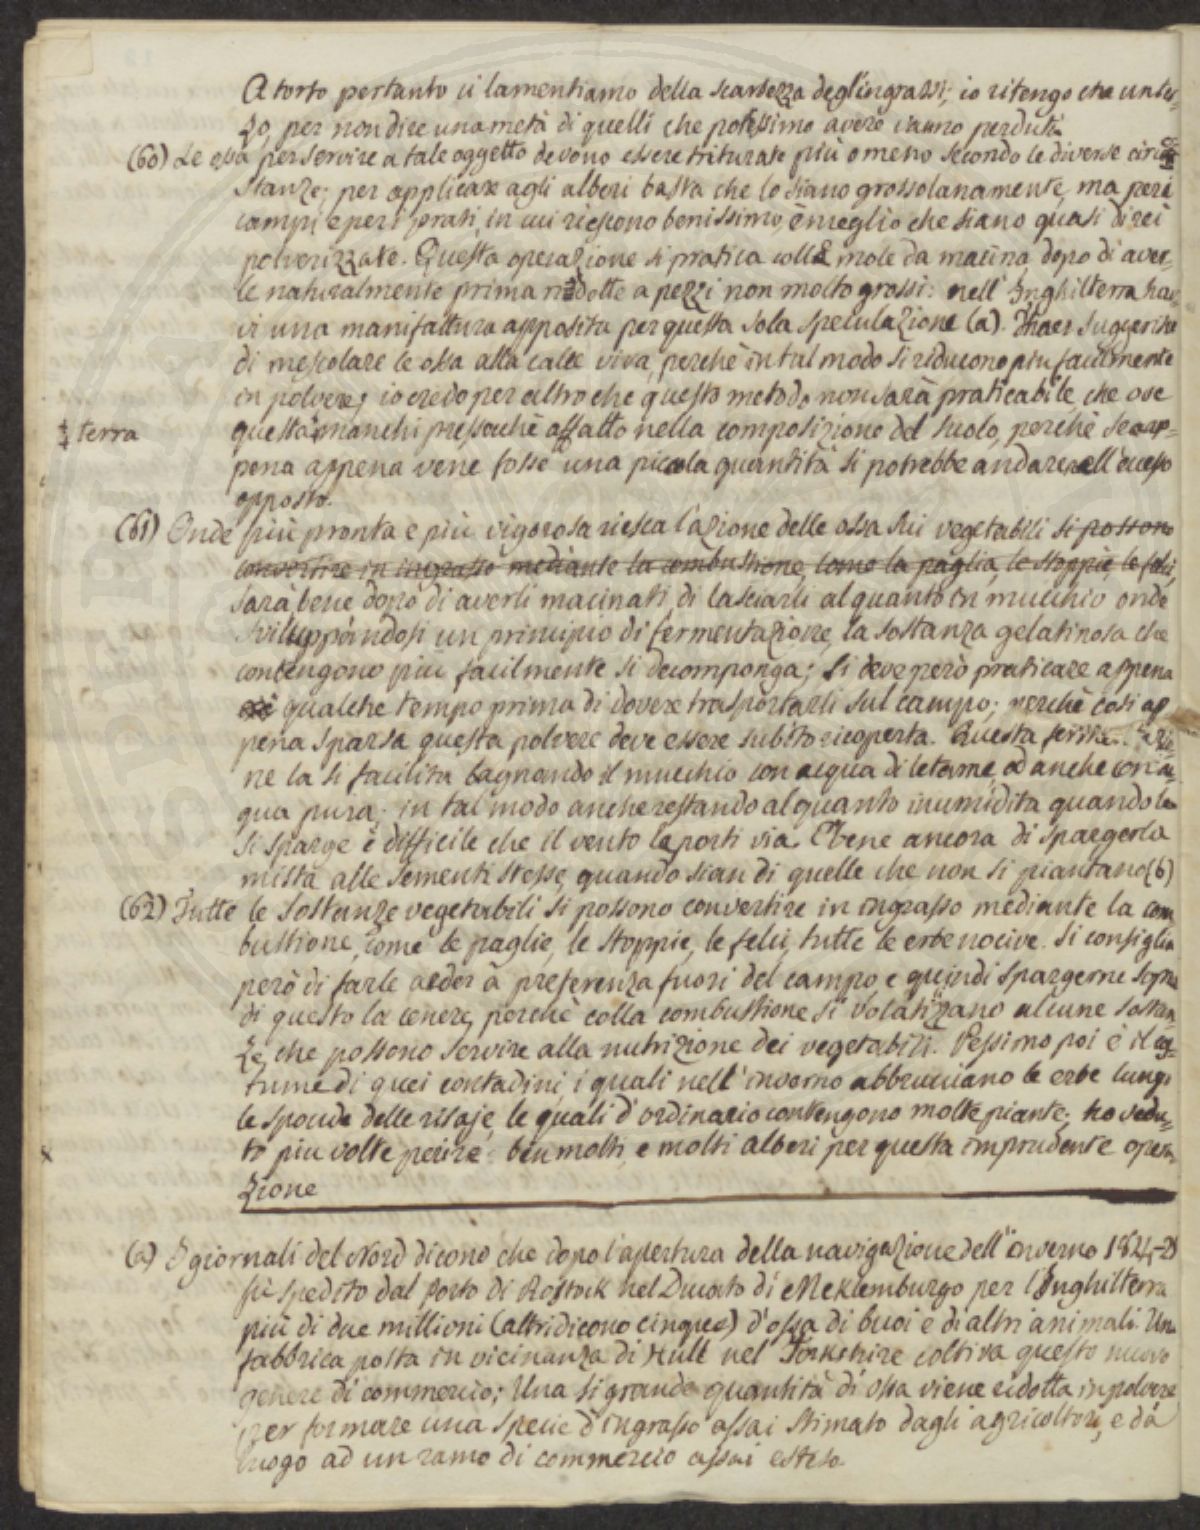 A torto pertanto ci lamentiamo della scarsezza degl'ingrassi; io ritengo che un ter-
zo, per non dire una metà di quelli che potessimo avere vanno perduti.
(60) Le ossa per servire a tale oggetto devono essere triturate più o meno secondo le diverse circo
stanze; per applicare agli alberi basta che lo siano grossolanamente, ma pei
campi, e pei prati, in cui riescono benissimo, è meglio che siano quasi direi
polverizzate. Questa operazione si pratica colle mole da macina, dopo di aver-
le naturalmente prima ridotte a pezzi non molto grossi: nell'Inghilterra hav
vi una manifattura apposita per questa sola speculazione (a). Thaer suggerisce
di mescolare le ossa alla calce viva, perchè in tal modo si riducono più facilmente
in polvere; io credo per altro che questo metodo non sarà praticabile, che ove
questa manchi pressochè affatto nella composizione del suolo, perchè se ap-
terra
pena appena vene fosse una piccola quantità si potrebbe andare nell'eccesso
opposto.
(61) Onde più pronta e più vigorosa riesca l'azione delle ossa sui vegetabili si possono
convertire in ingrasso mediante la combustione, come la paglia, le stoppie, le felci,
sarà bene dopo di averli macinati, di lasciarli alquanto in mucchio onde
sviluppandosi un principio di fermentazione, la sostanza gelatinosa che
contengono più facilmente si decomponga; si deve però praticare appena
qualche tempo prima di dover trasportarli sul campo; perchè così ap
pena sparsa questa polvere deve essere subito ricoperta. Questa
ne la si facilita bagnando il mucchio con acqua di letame, od anche con ac
qua pura; in tal modo anche restando alquanto inumidita quando la
si sparge è difficile che il vento la porti via. È bene ancora di spargerla
mista alle sementi stesse, quando sian di quelle che non si piantano (b)
(62) Tutte le sostanze vegetabili si possono convertire in ingrasso mediante la com
bustione, come le paglie, le stoppie, le felci, tutte le erbe nocive. Si consiglia
però di farle arder a preferenza fuori del campo e quindi spargerne sopra
di questo la cenere, perchè colla combustione si volatizzano alcune sostan-
ze, che possono servire alla nutrizione dei vegetabili. Pessimo poi è il co-
stume di quei contadini, i quali nell'inverno abbruciano le erbe lungo
le sponde delle risaje, le quali d'ordinario contengono molte piante; ho vedu-
to più volte perire ben molti, e molti alberi per questa imprudente opera-
zione
(a) I giornali del Nord dicono che dopo l'apertura della navigazione dell'inverno 1824-25
fù spedito dal porto di Rostock nel Ducato di Meklemburgo per l'Inghilterra
più di due millioni (altri dicono cinque) d'ossa di buoi e di altri animali. Una
fabbrica posta in vicinanza di Hull nel Yorkshire coltiva questo nuovo
genere di commercio; Una sì grande quantità di ossa viene ridotta in polvere
per formare una specie d'ingrasso assai stimato dagli agricoltori, e dà
luogo ad un ramo di commercio assai esteso.